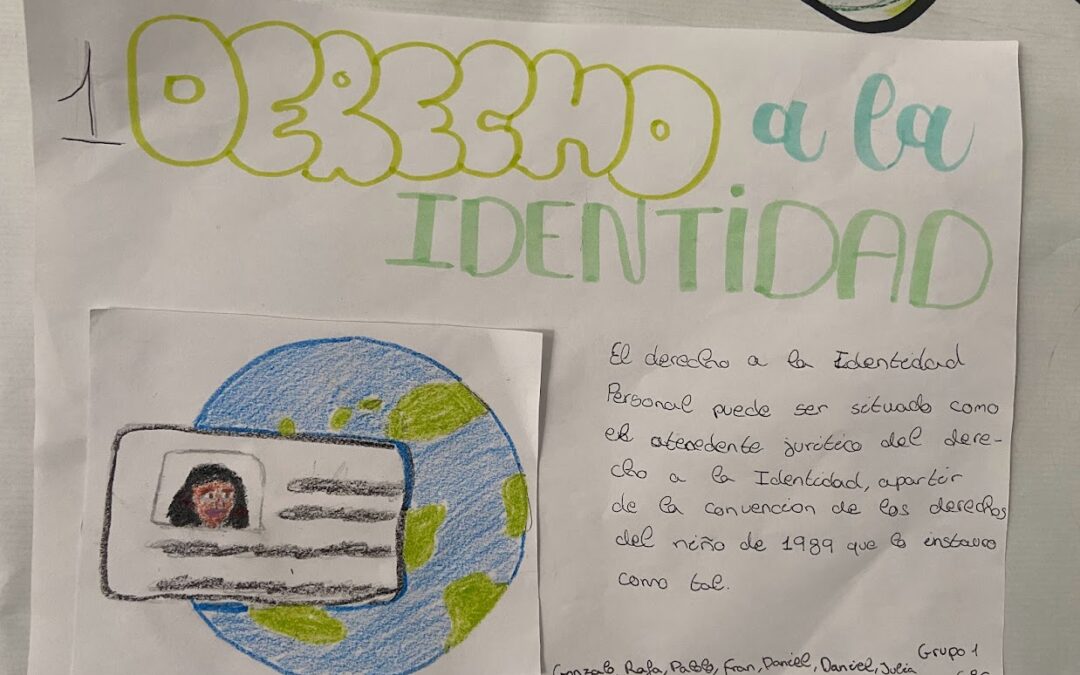 1 DERECHO a la
IDENTIDAD
El derecho a la Identidad
Personal puede ser situado como
el atecedente juritico del dere-
cho a la Identidad, apartir
de la convencion de los derechos
del niño de 1989 que lo instauro
como tal.
Grupo 1
Gonzalo Rafa, Pablo, Fran, Daniel, Daniel, Julia